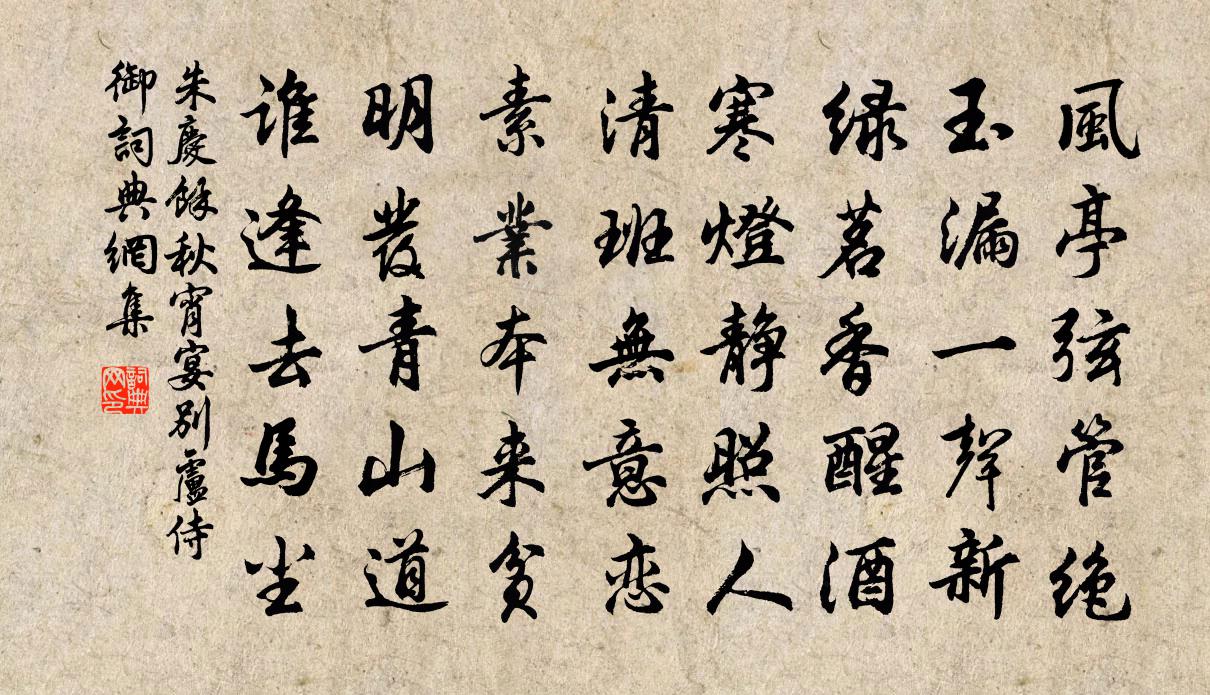 風亭弦管绝
玉漏一聲新
绿茗香醒酒
寒燈靜照人
清班無意恋
素業本来貧
明發青山道
谁逢去馬尘
朱慶餘秋宵宴別盧侍
御詞典網集
詞典网印